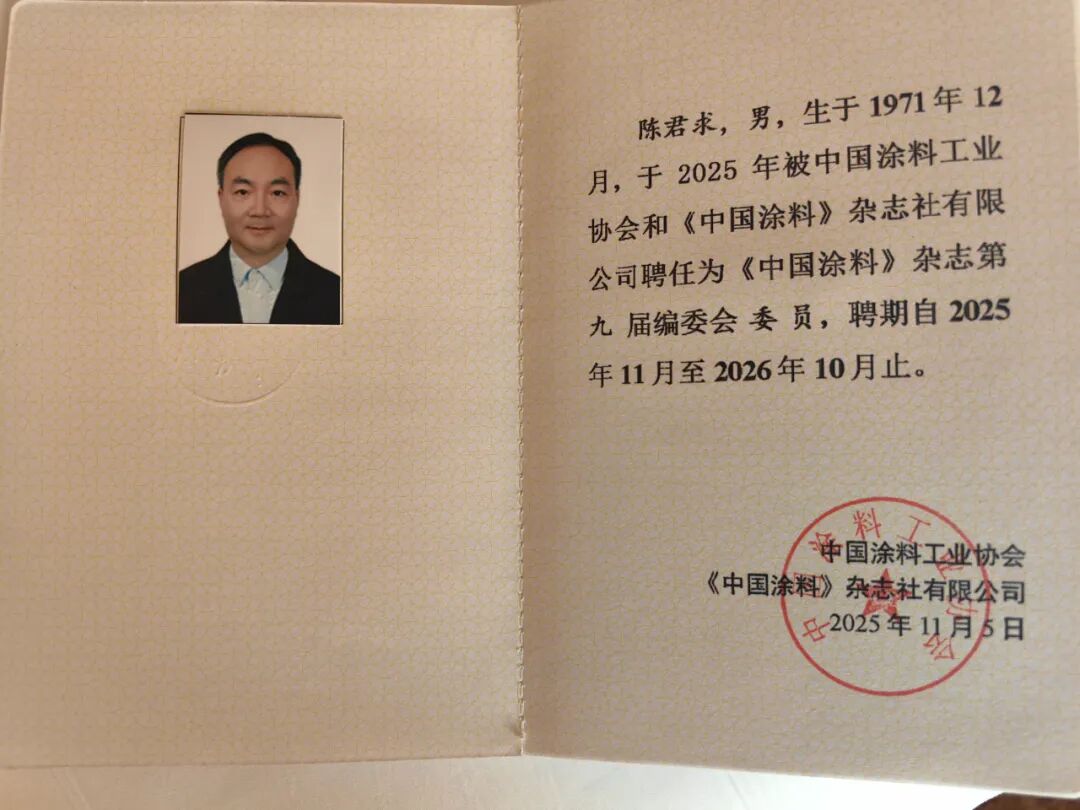 陈君求，男，生于 1971 年 12
月，于 2025 年被中国涂料工业
协会和《中国涂料》杂志社有限
公司聘任为《中国涂料》杂志第
九 届编委会 委 员，聘期自 2025
年 11 月至 2026 年 10 月止。
中国涂料工业协会
中国涂料工业协会
《中国涂料》杂志社有限公司
2025 年 11 月 5 日